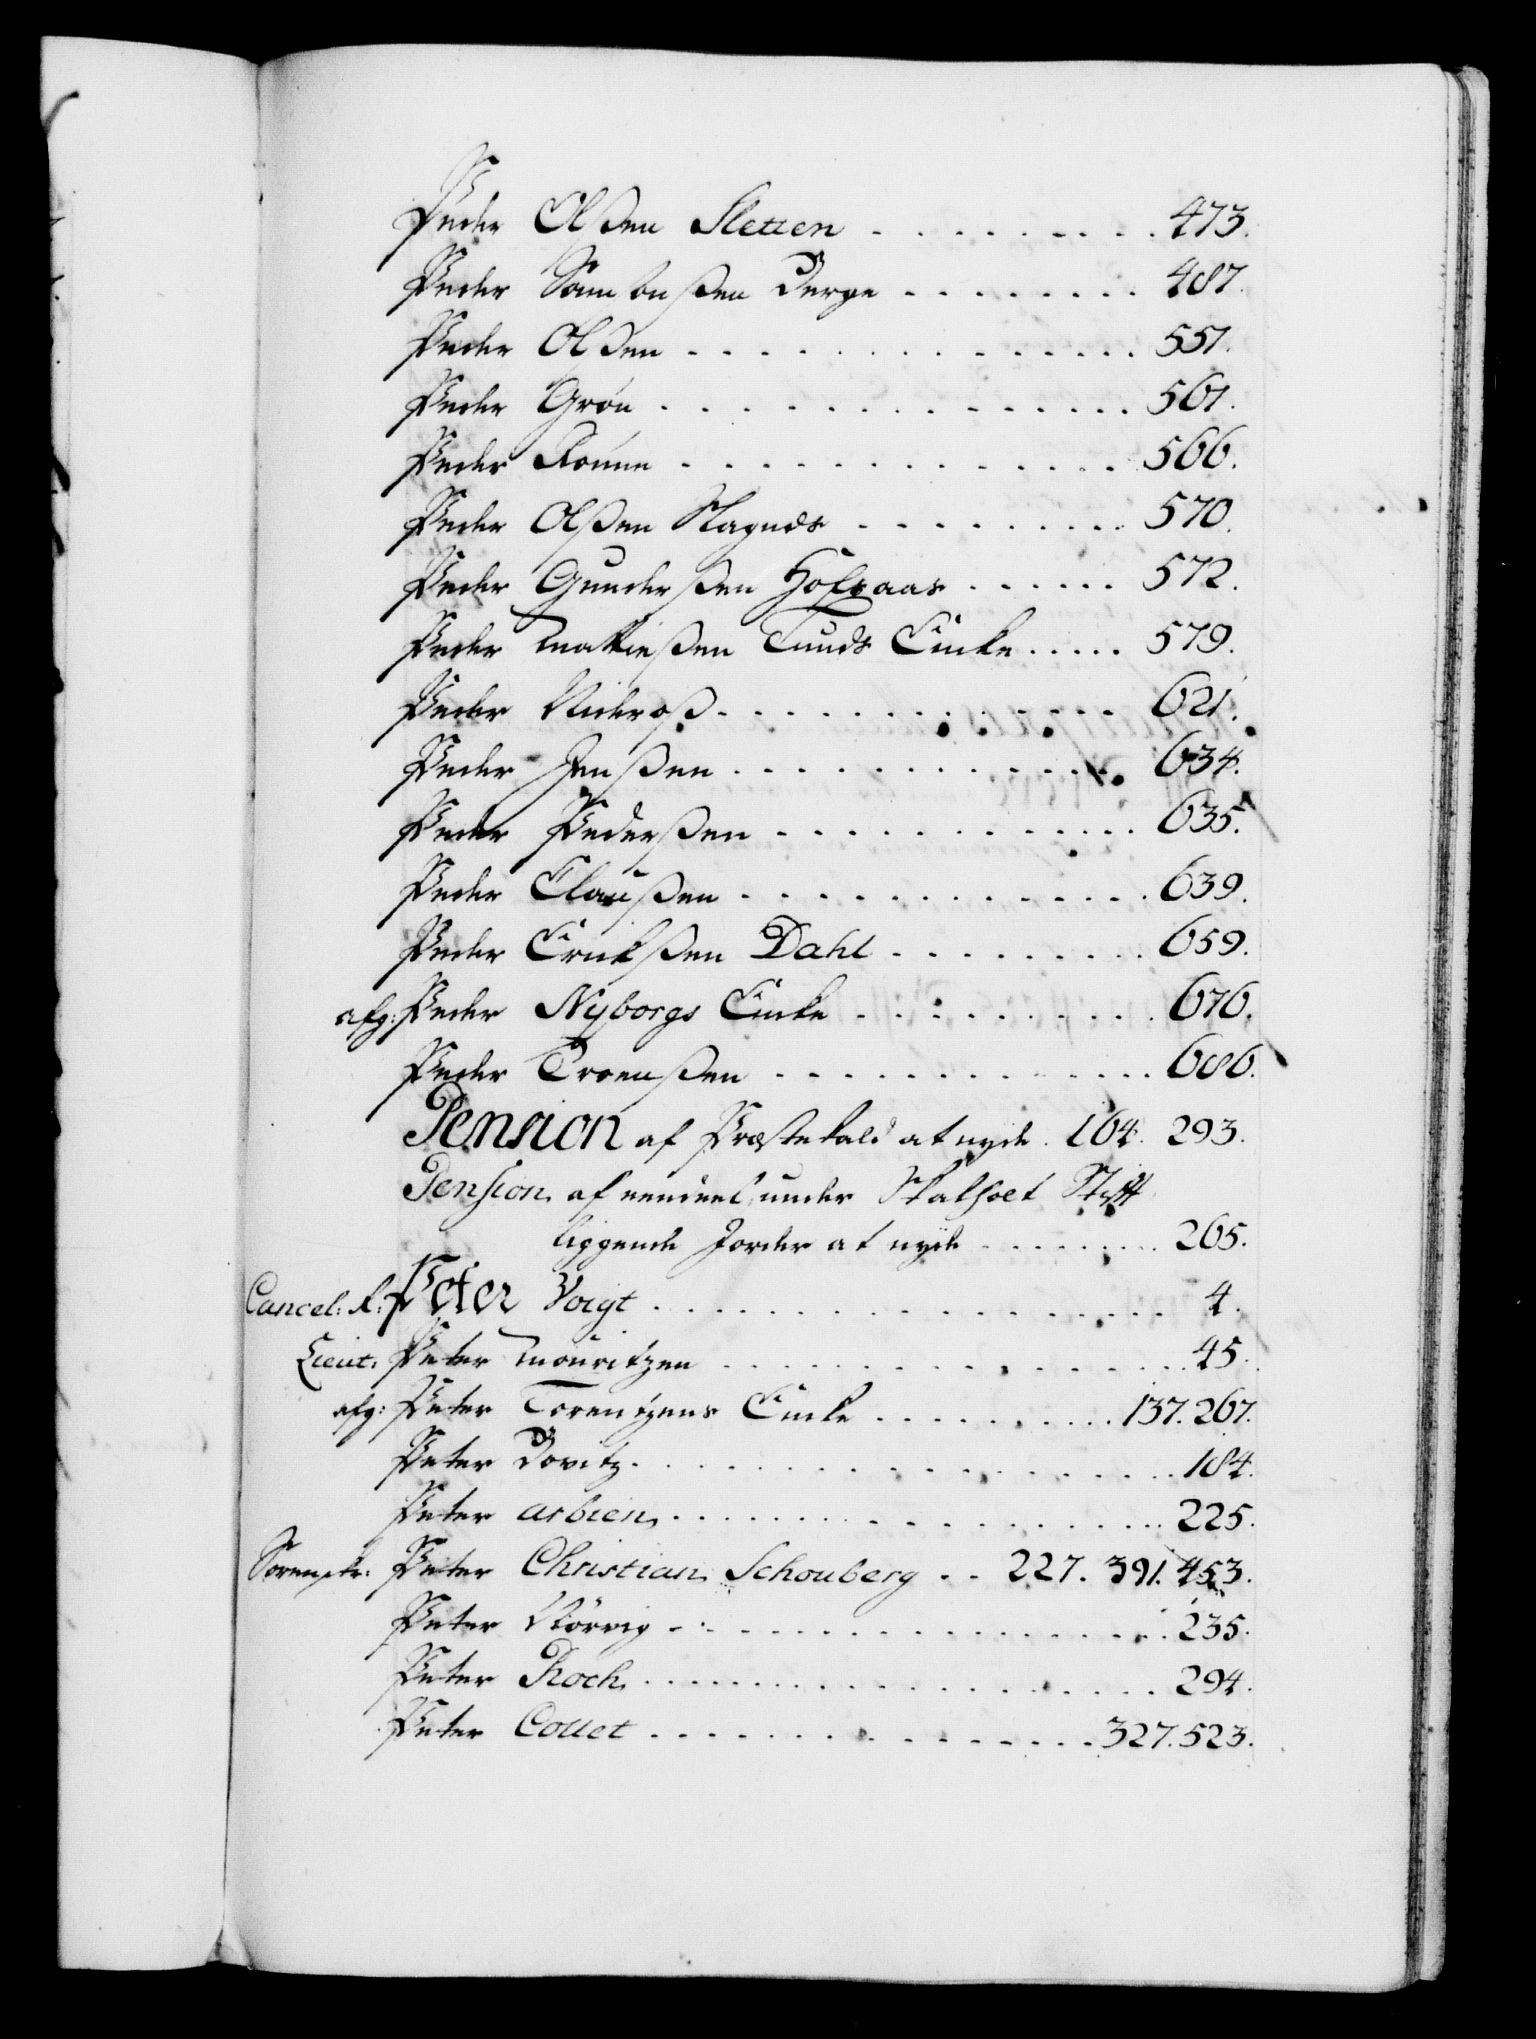 Peder Olßen Sletten . . . . . . . . . 473.
Peder Derge . . . . . . . . 487.
Peder Olsen . . . . . . . . . . . . . 557.
Peder Grön . . . . . . . . . . . . . . 561.
Peder Römne . . . . . . . . . . . . . 566.
Peder Olßen . . . . . . . . . 570.
Peder Gunderßen Hofgaas . . . . . . 572.
Peder Mathießen Lunds Encke . . . . . 579.
Peder Nideroß . . . . . . . . . . . . 621.
Peder Jenßen . . . . . . . . . . . . 634.
Peder Pederßen . . . . . . . . . . . 635.
Peder Claußen . . . . . . . . . . . . 639.
Peder Erickßen Dahl . . . . . . . . . 659.
afg: Peder Nyborgs Encke . . . . . . . . . 676.
Peder Troenßen . . . . . . . . . . . . 686.
Pension af Præstekald at nyde . 164. 293.
Pension af eendeel under Skalholt Stift
liggende Jorder at nyde . . . . . . . 265.
Cancel: R: Peter Voigt . . . . . . . . . . . . . . . . 4.
Lieut. Peter Mouritzen . . . . . . . . . . . . . . 45.
afg: Peter Lorentzens Encke . . . . . . . . . . 137. 267.
Peter Dovitz . . . . . . . . . . . . . . . . 184.
Peter Arbien . . . . . . . . . . . . . . . 225.
Sorenskr: Peter Christian Schouberg . . 227. 391. 453.
Peter Nörvig . . . . . . . . . . . . . . . 235.
Peter Koch . . . . . . . . . . . . . . . . 294.
Peter Collet . . . . . . . . . . . . . . 327. 523.